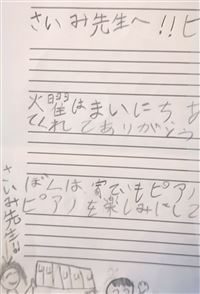 さいみ先生へ!!ピ
火曜はまいにちあ
てくれてありがとう
ぼくは家でもピアノ
ピアノを楽しみにして
さいみ先生